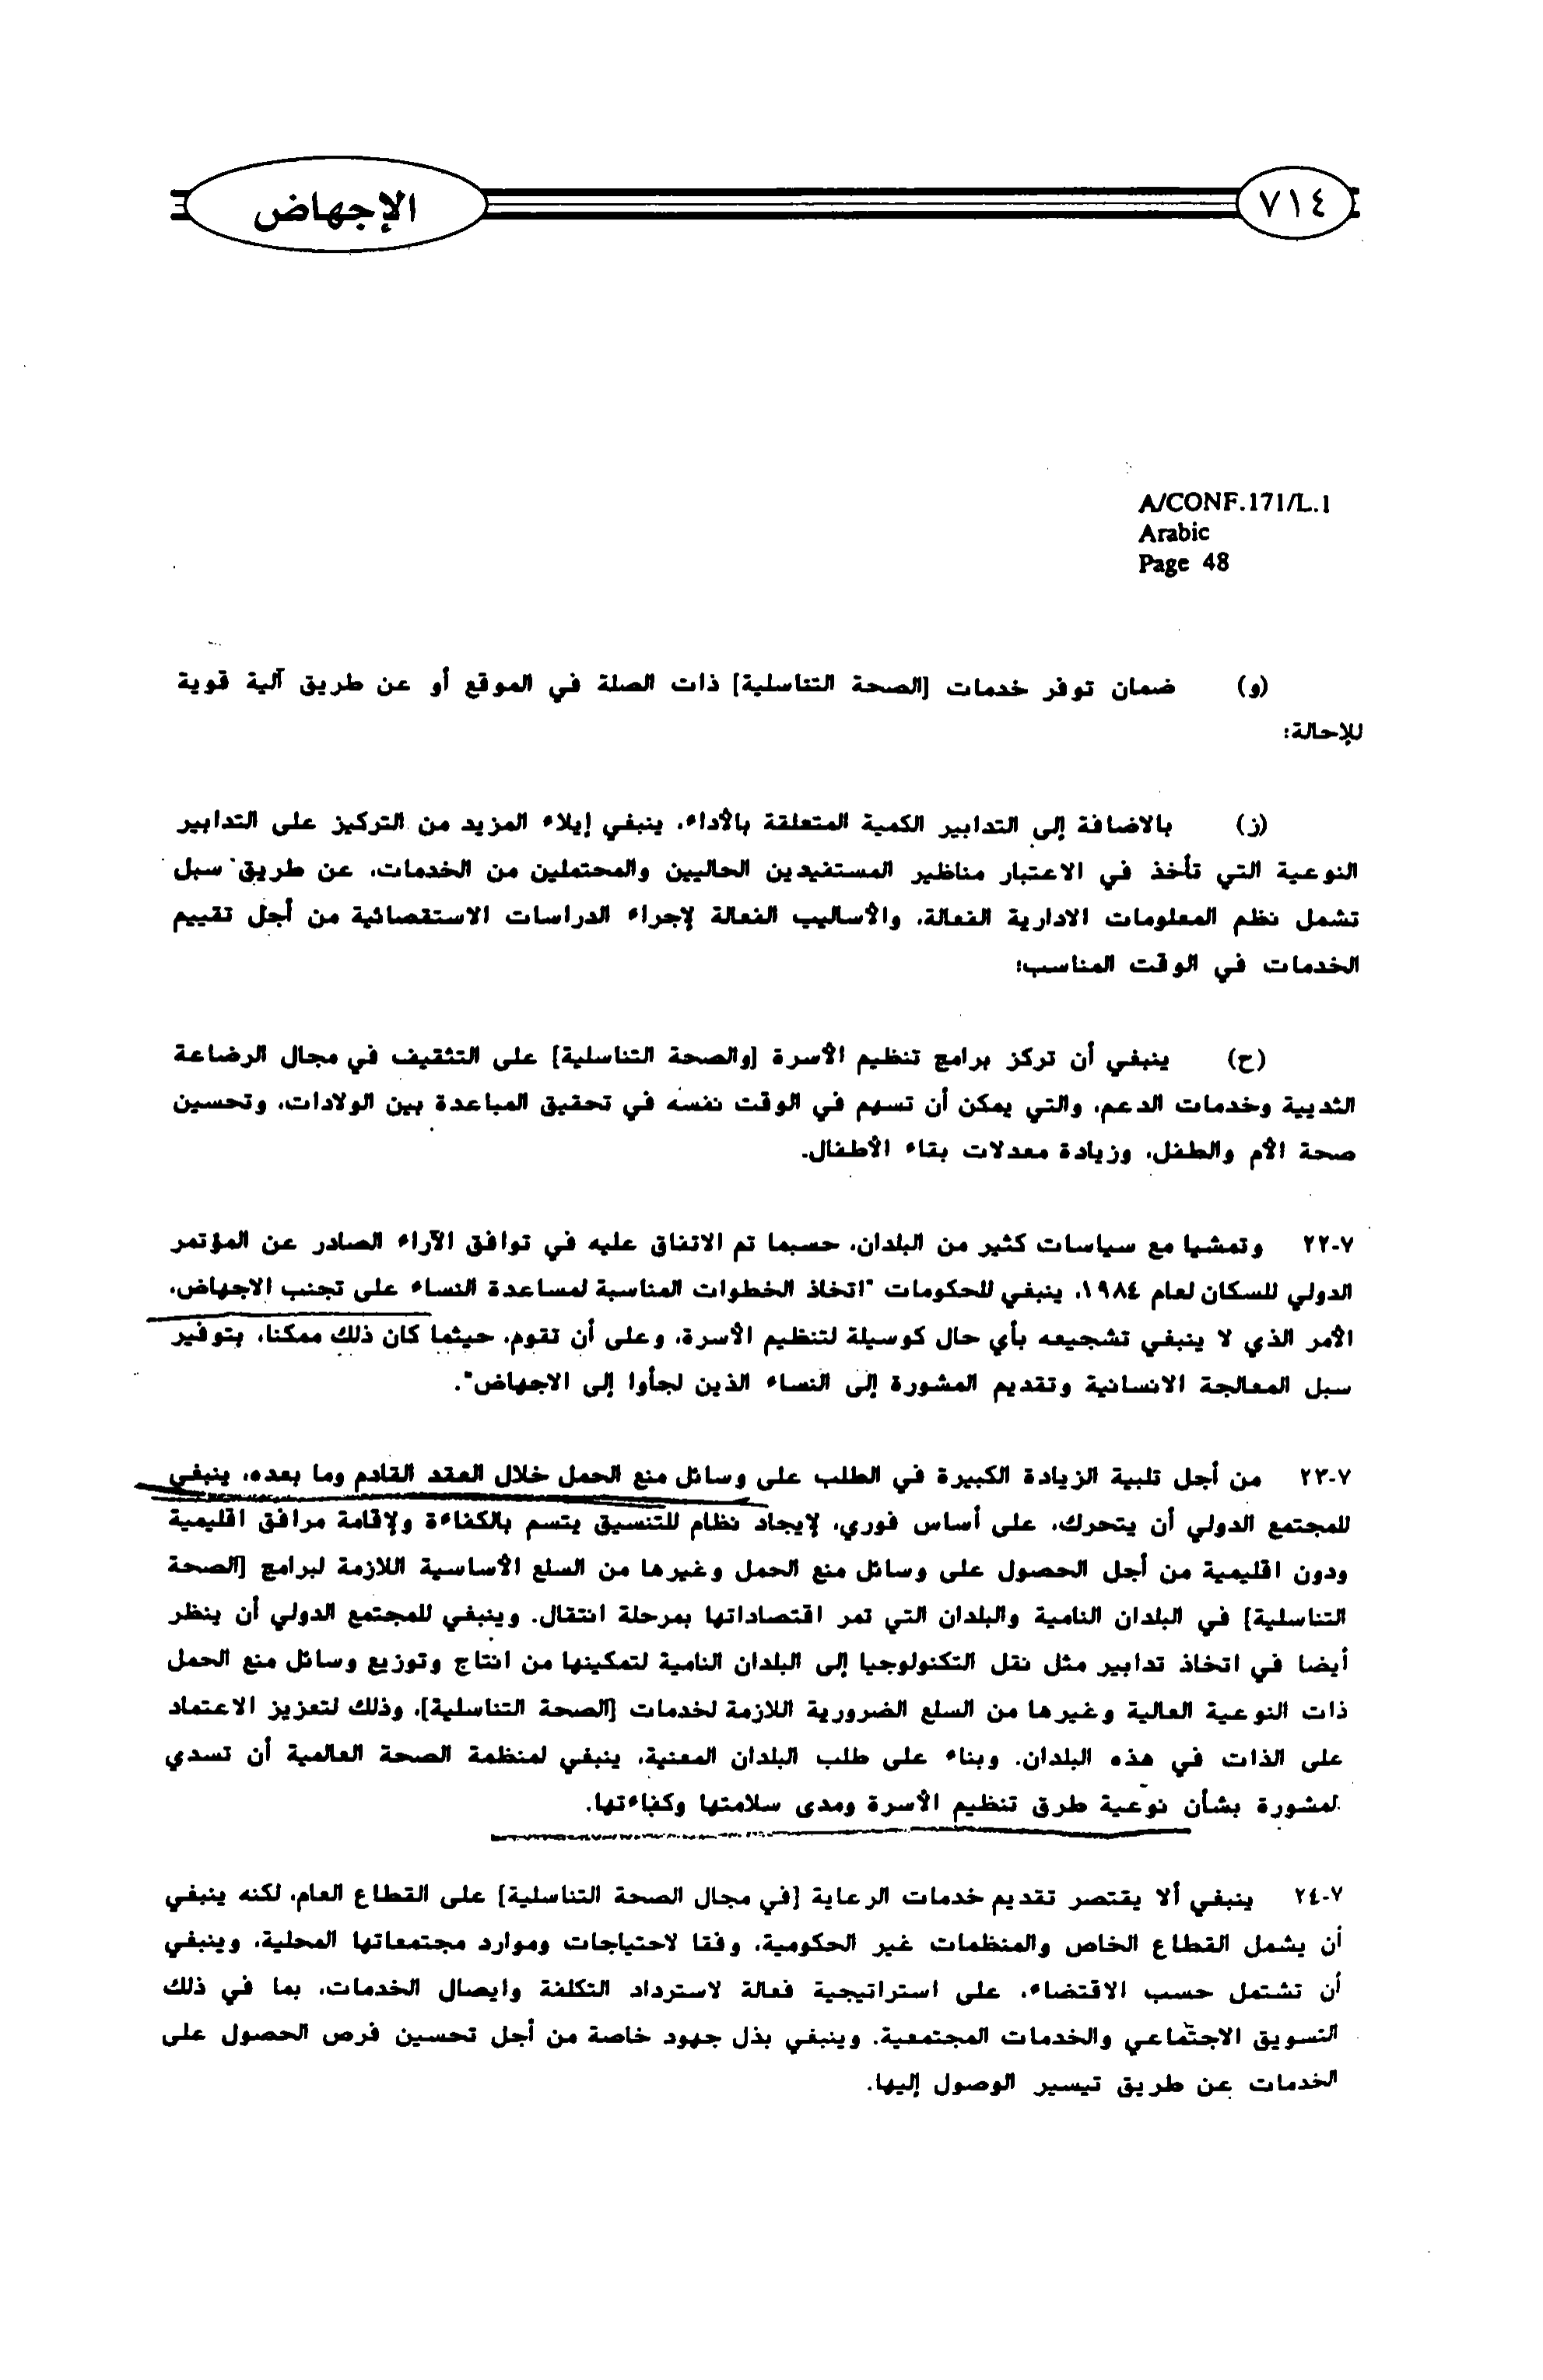 ٧١٤
الإجهاض
A/CONF.171/L.1
Arabic
Page 48
(و) ضمان توفر خدمات [الصحة التناسلية] ذات الصلة في الموقع أو عن طريق آلية قوية
للإحالة؛
(ز) بالاضافة إلى التدابير الكمية المتعلقة بالأداء، ينبغي إيلاء المزيد من التركيز على التدابير
النوعية التي تأخذ في الاعتبار مناظير المستفيدين الحاليين والمحتملين من الخدمات، عن طريق سبل
تشمل نظم المعلومات الادارية الفعالة، والأساليب الفعالة لإجراء الدراسات الاستقصائية من أجل تقييم
الخدمات في الوقت المناسب؛
(ح) ينبغي أن تركز برامج تنظيم الأسرة [والصحة التناسلية] على التثقيف في مجال الرضاعة
الثديية وخدمات الدعم، والتي يمكن أن تسهم في الوقت نفسه في تحقيق المباعدة بين الولادات، وتحسين
صحة الأم والطفل، وزيادة معدلات بقاء الأطفال.
٧-٢٢ وتمشيا مع سياسات كثير من البلدان، حسبما تم الاتفاق عليه في توافق الآراء الصادر عن المؤتمر
الدولي للسكان لعام ١٩٨٤، ينبغي للحكومات "اتخاذ الخطوات المناسبة لمساعدة النساء على تجنب الاجهاض،
الأمر الذي لا ينبغي تشجيعه بأي حال كوسيلة لتنظيم الأسرة، وعلى أن تقوم، حيثما كان ذلك ممكنا، بتوفير
سبل المعالجة الانسانية وتقديم المشورة إلى النساء الذين لجأوا إلى الاجهاض".
٧-٢٣ من أجل تلبية الزيادة الكبيرة في الطلب على وسائل منع الحمل خلال العقد القادم وما بعده، ينبغي
للمجتمع الدولي أن يتحرك، على أساس فوري، لإيجاد نظام للتنسيق يتسم بالكفاءة ولإقامة مرافق اقليمية
ودون اقليمية من أجل الحصول على وسائل منع الحمل وغيرها من السلع الأساسية اللازمة لبرامج [الصحة
التناسلية] في البلدان النامية والبلدان التي تمر اقتصاداتها بمرحلة انتقال. وينبغي للمجتمع الدولي أن ينظر
أيضا في اتخاذ تدابير مثل نقل التكنولوجيا إلى البلدان النامية لتمكينها من انتاج وتوزيع وسائل منع الحمل
ذات النوعية العالية وغيرها من السلع الضرورية اللازمة لخدمات [الصحة التناسلية]، وذلك لتعزيز الاعتماد
على الذات في هذه البلدان. وبناء على طلب البلدان المعنية، ينبغي لمنظمة الصحة العالمية أن تسدي
لمشورة بشأن نوعية طرق تنظيم الأسرة ومدى سلامتها وكفاءتها.
٧-٢٤ ينبغي ألا يقتصر تقديم خدمات الرعاية [في مجال الصحة التناسلية] على القطاع العام، لكنه ينبغي
أن يشمل القطاع الخاص والمنظمات غير الحكومية، وفقا لاحتياجات وموارد مجتمعاتها المحلية، وينبغي
أن تشتمل حسب الاقتضاء، على استراتيجية فعالة لاسترداد التكلفة وايصال الخدمات، بما في ذلك
التسويق الاجتماعي والخدمات المجتمعية. وينبغي بذل جهود خاصة من أجل تحسين فرص الحصول على
الخدمات عن طريق تيسير الوصول إليها.